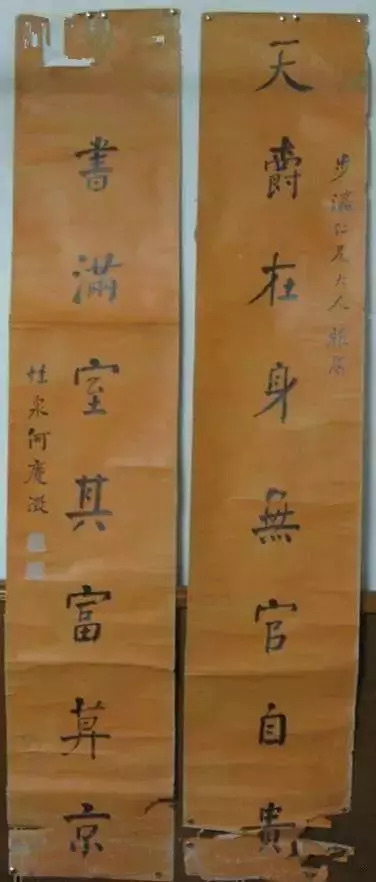 步瀛仁兄大人雅屬
天爵在身無官自貴
書滿室其富莫京
性泉何慶澂